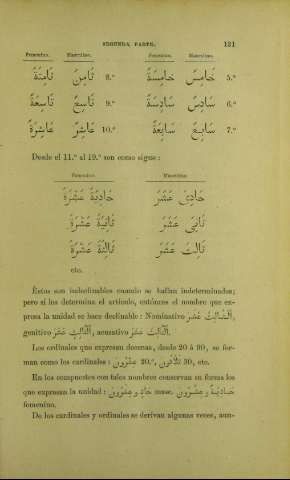 SEGUNDA PARTE. 121
Femenino. Masculino. Femenino. Masculino.
ثَامِنَةٌ ثَامِنٌ 8.º خَامِسَةٌ خَامِسٌ 5.º
تَاسِعَةٌ تَاسِعٌ 9.º سَادِسَةٌ سَادِسٌ 6.º
عَاشِرَةٌ عَاشِرٌ 10.º سَابِعَةٌ سَابِعٌ 7.º
Desde el 11.º al 19.º son como sigue:
Femenino. Masculino.
حَادِيَةَ عَشْرَةَ حَادِىَ عَشَرَ
ثَانِيَةَ عَشْرَةَ ثَانِىَ عَشَرَ
ثَالِثَةَ عَشْرَةَ ثَالِثَ عَشَرَ
etc.
Éstos son indeclinables cuando se hallan indeterminados;
pero si los determina el artículo, entónces el nombre que ex-
presa la unidad se hace declinable: Nominativo اَلثَّالِثُ عَشَرَ,
genitivo اَلثَّالِثِ عَشَرَ, acusativo اَلثَّالِثَ عَشَرَ.
Los ordinales que expresan decenas, desde 20 á 90, se for-
man como los cardinales: عِشْرُونَ 20.º, ثَلَاثُونَ 30, etc.
En los compuestos con tales nombres conservan su forma los
que expresan la unidad: حَادٍ وَعِشْرُونَ masc. حَادِيَةٌ وَعِشْرُونَ
femenino.
De los cardinales y ordinales se derivan algunas veces, aun-